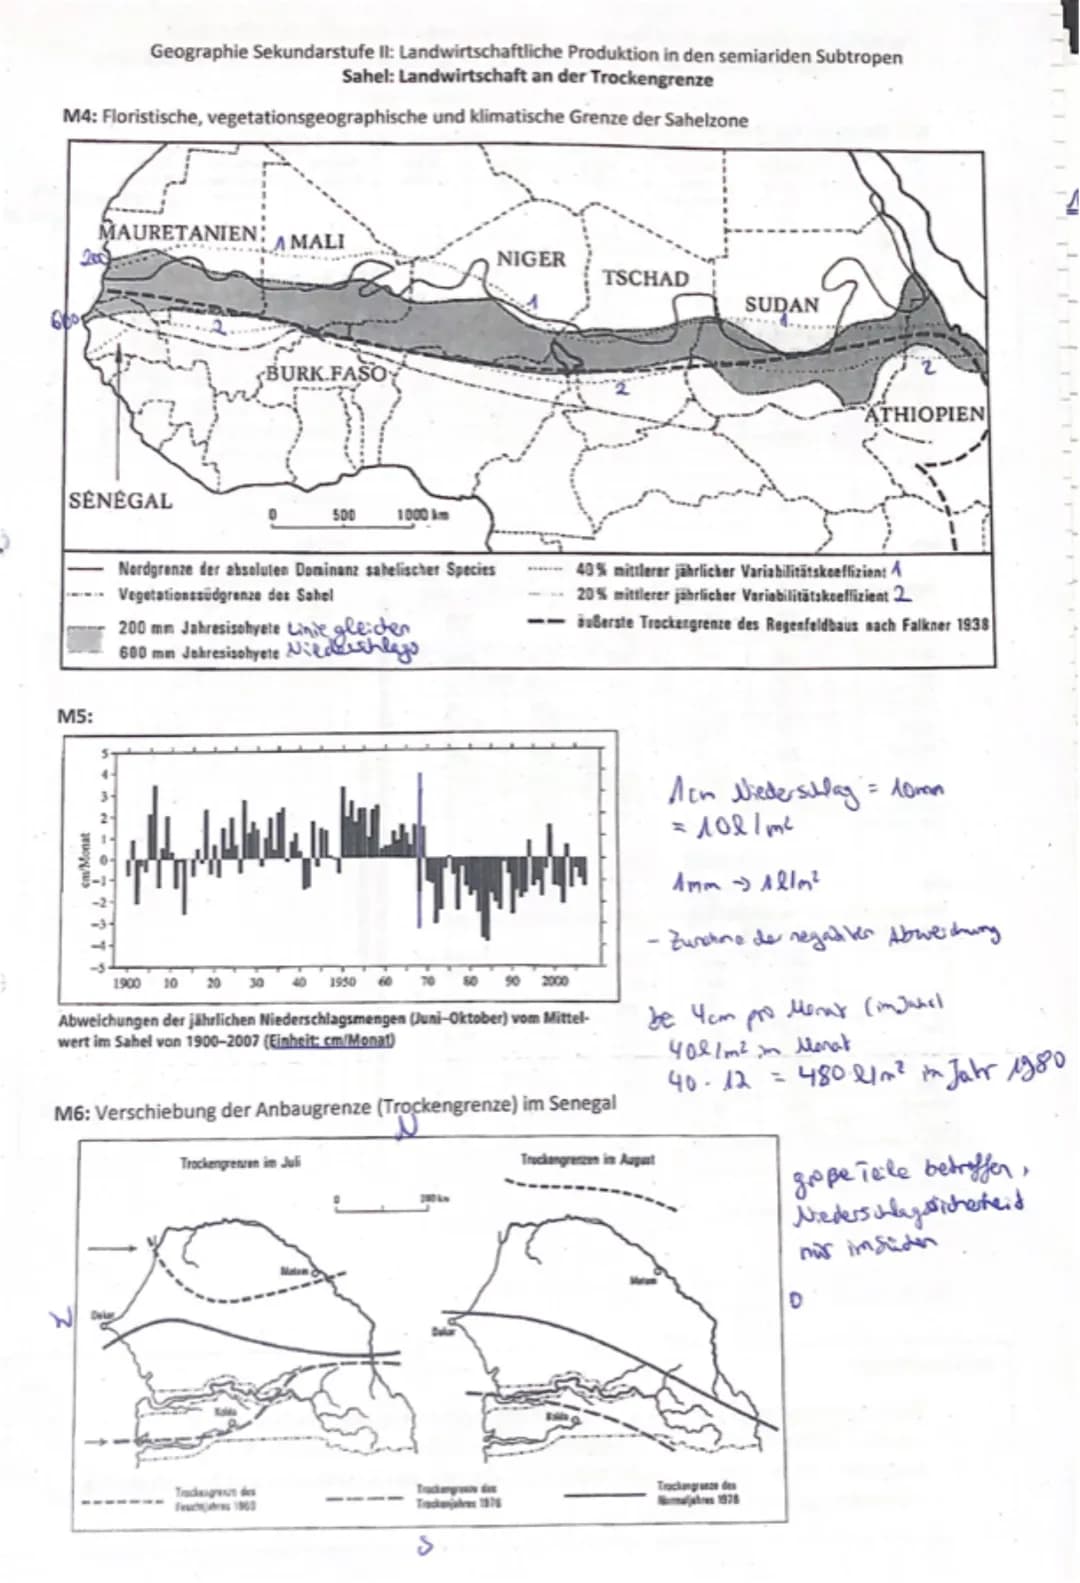 Geographie Sekundarstufe II: Landwirtschaftliche Produktion in den semiariden Subtropen
Sahel: Landwirtschaft an der Trockengrenze
M4: Floristische, vegetationsgeographische und klimatische Grenze der Sahelzone
MAURETANIEN
1 MALI
200
NIGER
TSCHAD
1
SUDAN
1
600
2
BURK.FASO
2
2
ÄTHIOPIEN
SÉNÉGAL
0 500 1000 km
Nordgrenze der absoluten Dominanz sahelischer Species
Vegetationssüdgrenze des Sahel
200 mm Jahresisohyete Linie gleichen
600 mm Jahresisohyete Niederschlags
40% mittlerer jährlicher Variabilitätskoeffizient 1
20% mittlerer jährlicher Variabilitätskoeffizient 2
äußerste Trockengrenze des Regenfeldbaus nach Falkner 1938
M5:
5
4
3
2
1
0
-1
-2
-3
-4
-5
cm/Monat
1900 10 20 30 40 1950 60 70 80 90 2000
Abweichungen der jährlichen Niederschlagsmengen (Juni-Oktober) vom Mittel-
wert im Sahel von 1900-2007 (Einheit: cm/Monat)
1cm Niederschlag = 10mm
= 10l/m²
1mm → 1l/m²
- Zunahme der negativen Abweichung
be 4cm pro Monat (im Jahr)
40l/m² im Monat
40 · 12 = 480 l/m² im Jahr 1980
M6: Verschiebung der Anbaugrenze (Trockengrenze) im Senegal
N
Trockengrenzen im Juli
Trockengrenzen im August
0 200 km
Matam
Dakar
Kolda
Matam
Dakar
Kolda
W
O
große Teile betroffen,
Niederschlagssicherheit
nur im Süden
Trockengrenze des
Feuchtjahres
Trockengrenze des
Trockenjahres
Trockengrenze des
Normaljahres
S